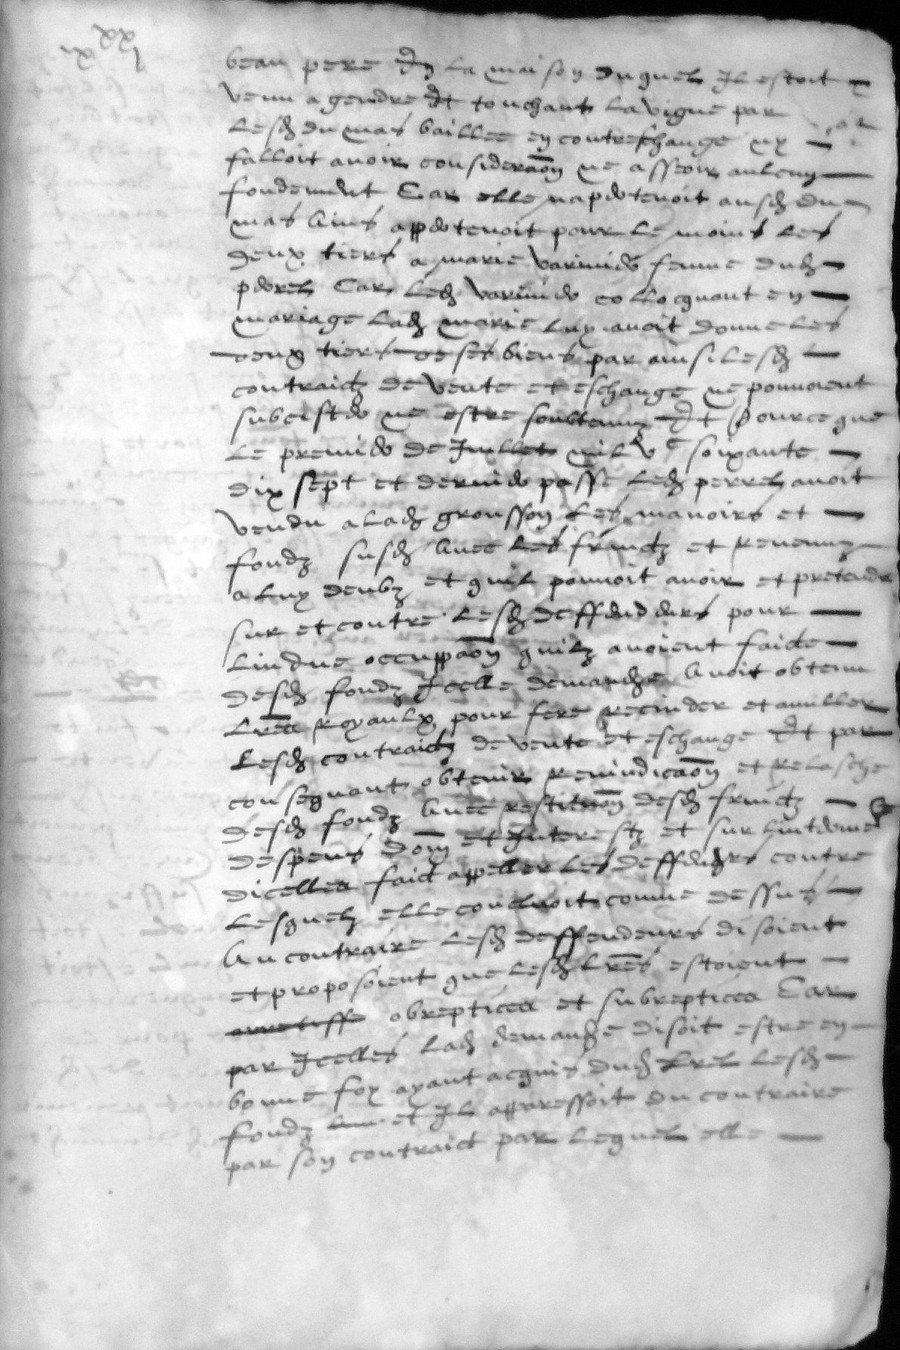 beau pere En la maison duquel Il estoit
venu a gendre Et touchant la vigne par
lesd du mas baillee en contreschange ny
falloit avoir consideraon ne asseoir aulcun
fondement Car elle napertenoit ausd du
mas Ains appertenoit pour le moins les
deux tiers a marie varinier femme dud
perrel Car led varinier collocquant en
mariage lad marie luy avoit donne les
deux tiers de ses biens par ainsi lesd
contraictz de vente et eschange ne pouvoient
subcister ne estre soubtenuz Et Pource que
le premier de Juillet mil Vc soixante
dix sept et dernier passe led perrel avoit
vendu a lad grousson les manoirs et
fondz susd Avec les fruictz et revenuz
a luy deubz et quil pouvoit avoir et pretendre
sur et contre lesd deffendeurs pour
lindue occuppaon quilz avoient faicte
desd fondz Icelle demand Avoit obtenu
lres Royaulx pour fere recinder et anuller
lesd contraictz de vente et eschange Et par
consequant obtenir revindicaon et relasche
desd fondz Avec restituon desd fruictz
despens dom et Interestz et sur lintherine
dicelles faict appeller les deffendrs contre
lesquelz elle concluoit comme dessus
Au contraire lesd deffendeurs disoient
et proposoient que lesd lres estoient
obreptices et subreptices Car
par Icelles lad demand e disoit estre en
bonne foy ayant acquis dud perrel lesd
fondz et Il apparessoit du contraire
par son contraict par lequel elle